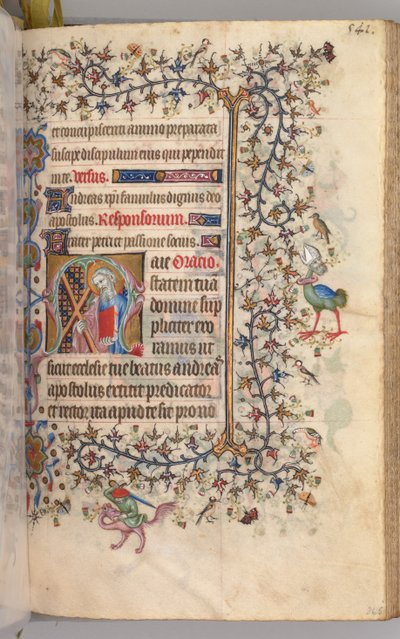 541.
et concupiscenti animo preparata
suscipe discipulum eius qui pependit
in te. Versus.
Andreas xpi famulus dignus deo
apostolus. Responsorium.
frater petri et passione socius.
aie Oratio.
statem tuā
domine sup
pliciter exo
ramus ut
sicut ecclesie tue beatus andreas
apostolus extitit predicator
et rector ita apud te sit pro no